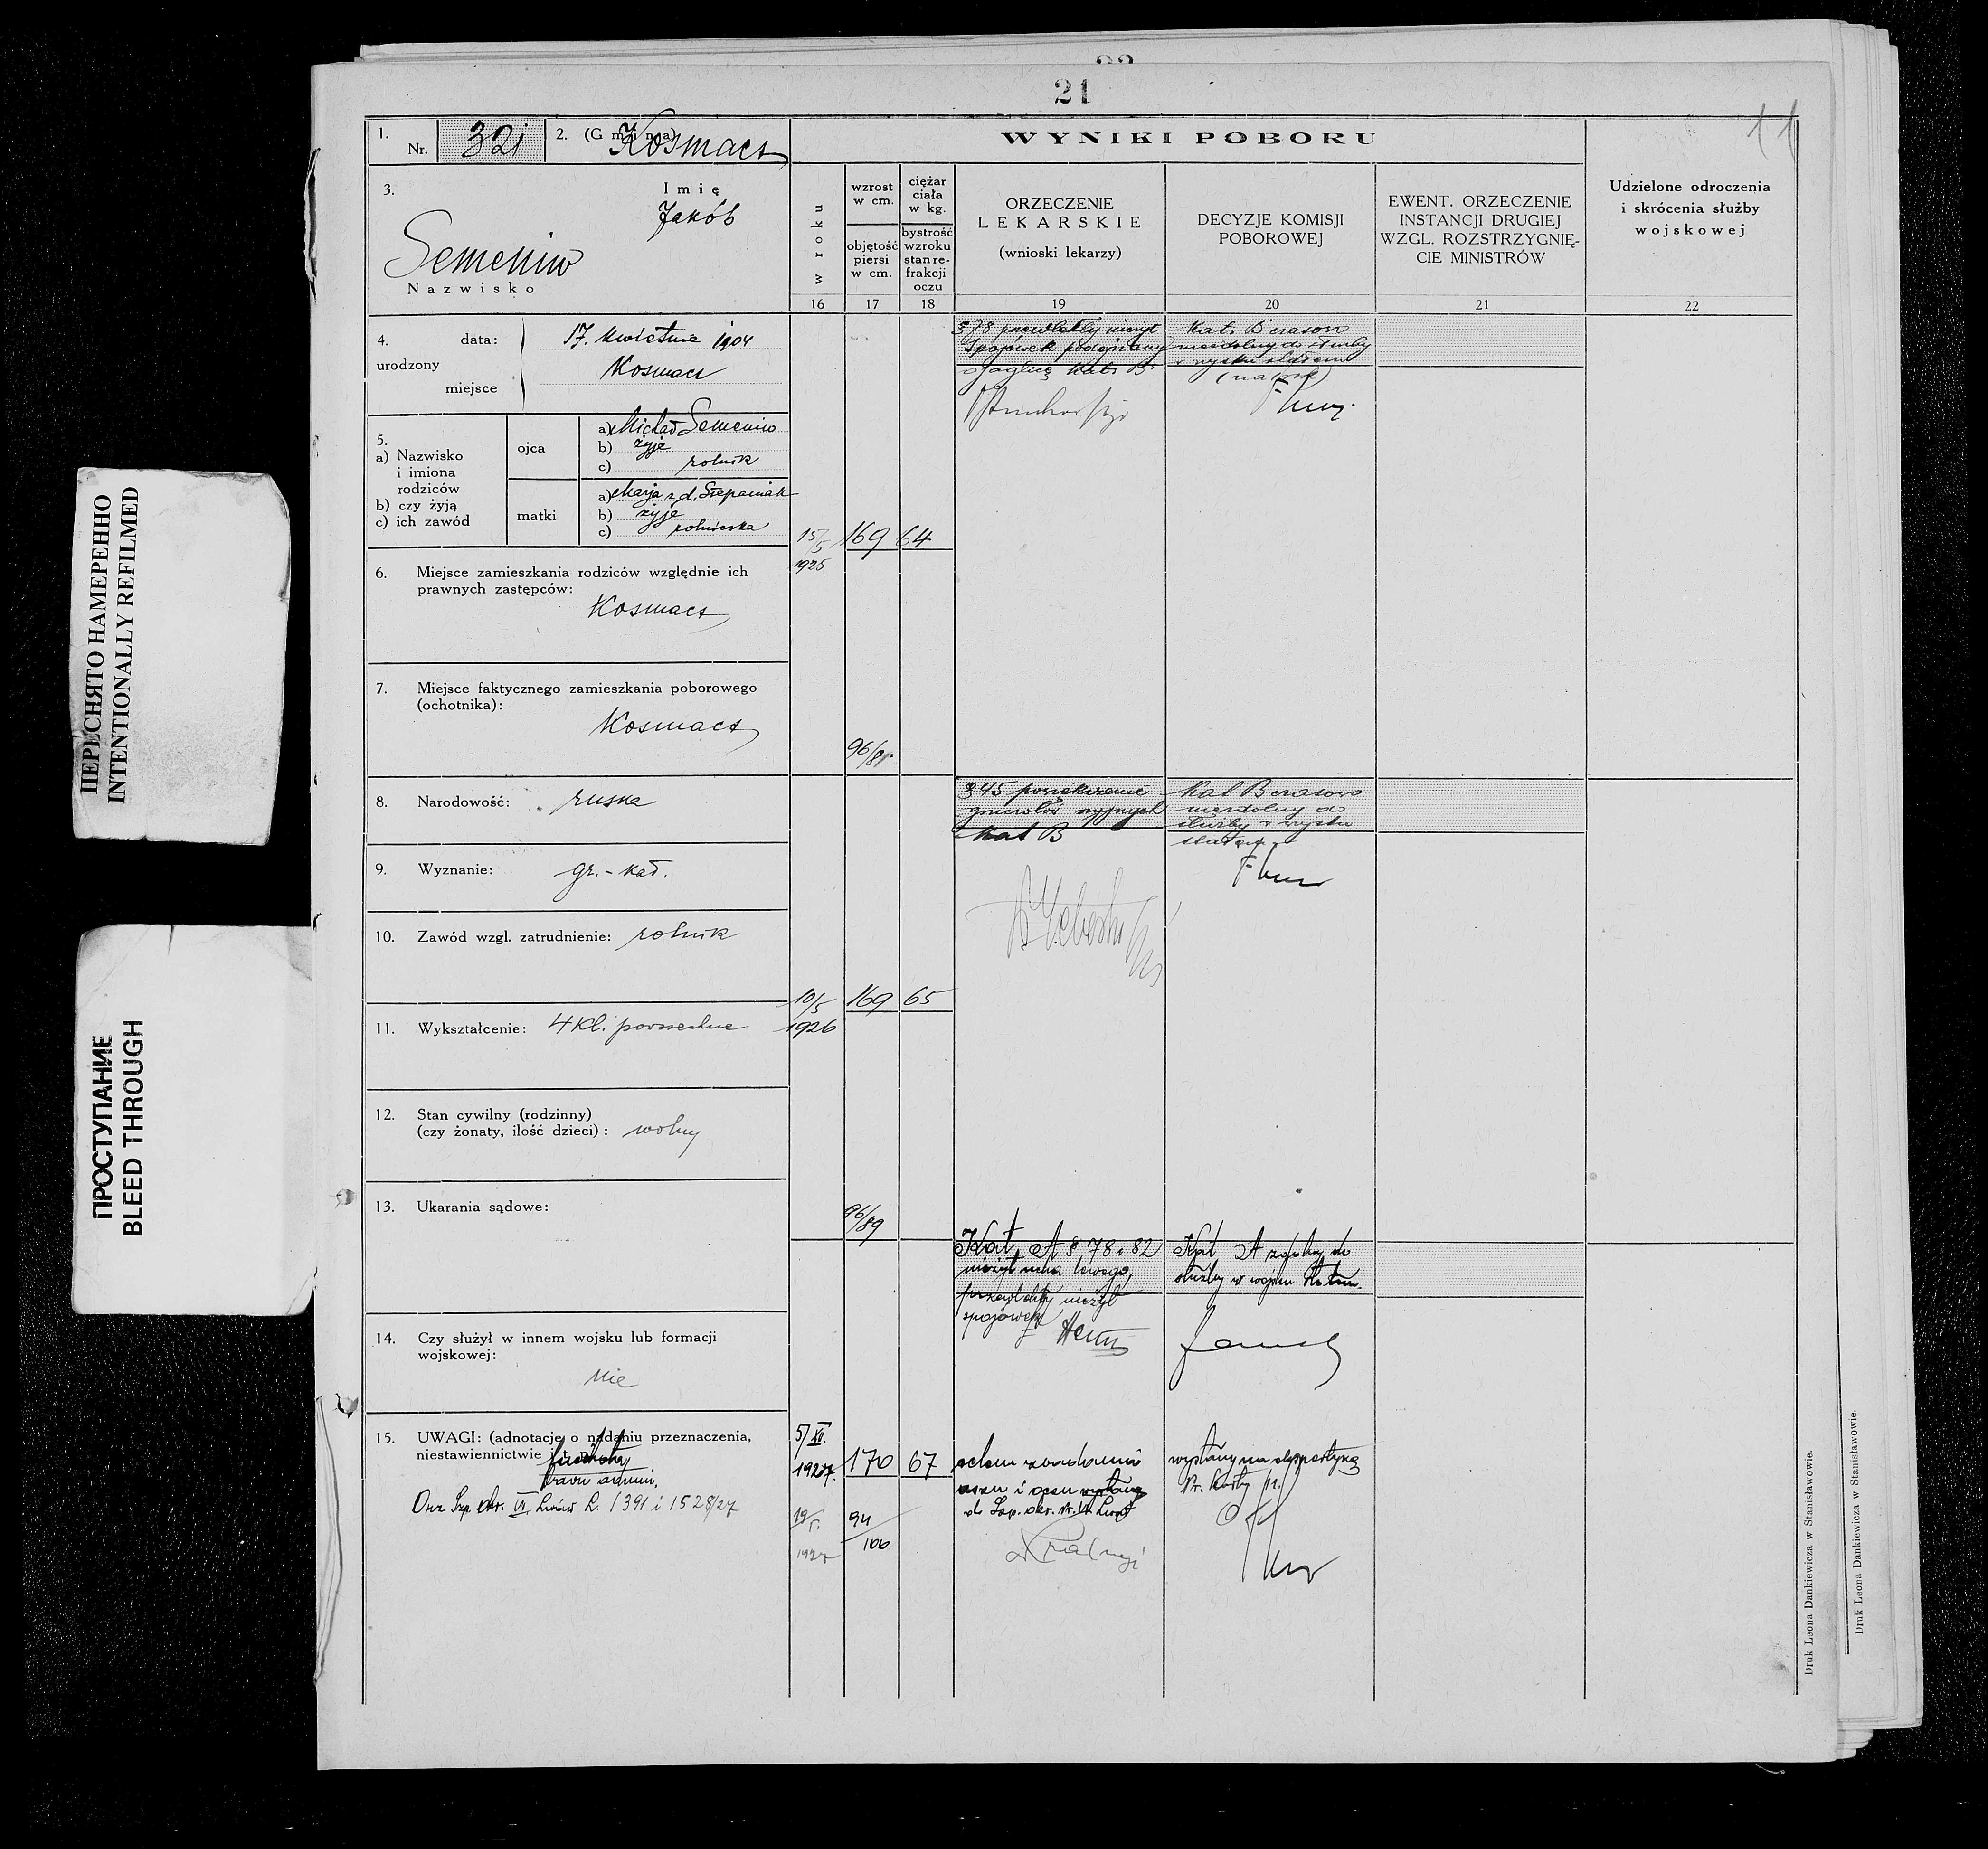 21
11
1. Nr. 321
2. (Gmina) Kosmacz
3. Imię
Jakób
Semeniw
Nazwisko
4. urodzony
data: 17. kwietnia 1904
miejsce Kosmacz
5.
a) Nazwisko
i imiona
rodziców
b) czy żyją
c) ich zawód
ojca
a) Michał Semeniw
b) żyje
c) rolnik
matki
a) Marja z d. Szepaniak
b) żyje
c) rolniczka
6. Miejsce zamieszkania rodziców względnie ich
prawnych zastępców:
Kosmacz
7. Miejsce faktycznego zamieszkania poborowego
(ochotnika):
Kosmacz
8. Narodowość: ruska
9. Wyznanie: gr.-kat.
10. Zawód wzgl. zatrudnienie: rolnik
11. Wykształcenie: 4 kl. powszechne
12. Stan cywilny (rodzinny)
(czy żonaty, ilość dzieci): wolny
13. Ukarania sądowe:
14. Czy służył w innem wojsku lub formacji
wojskowej:
nie
15. UWAGI: (adnotacje o nadaniu przeznaczenia,
niestawiennictwie i t. p.)
Orz. Szp. okr. VI. Lwów L. 1391 i 1528/27
WYNIKI POBORU
w roku
wzrost
w cm.
objętość
piersi
w cm.
ciężar
ciała
w kg.
bystrość
wzroku
stan re-
frakcji
oczu
ORZECZENIE
LEKARSKIE
(wnioski lekarzy)
DECYZJE KOMISJI
POBOROWEJ
EWENT. ORZECZENIE
INSTANCJI DRUGIEJ
WZGL. ROZSTRZYGNIĘ-
CIE MINISTRÓW
Udzielone odroczenia
i skrócenia służby
wojskowej
16 17 18 19 20 21 22
§ 78 przewlekły nieżyt
spojówek podejrzany
o jaglicę Kat. B
Kat. B czasowo
niezdolny do służby
w wojsku stałem
15/5
1925
169 64
96/85
§ 45
Kat B
Kat B czasowo
niezdolny do
służby w wojsku
stałem
10/5
1926
169 65
96/89
Kat. A § 78 i 82
nieżyt ucha lewego,
przewlekły nieżyt
spojówek
Kat A zdolny do
służby w wojsku stałem.
5/XII.
1927.
170 67
celem zbadania
uszu i oczu wysłany
do Szp. okr. Nr. VI Lwów
wysłany na ekspertyzę
19/5.
1927
94/106
Druk Leona Dankiewicza w Stanisławowie.
Druk Leona Dankiewicza w Stanisławowie.
ПЕРЕСНЯТО НАМЕРЕННО
INTENTIONALLY REFILMED
ПРОСТУПАНИЕ
BLEED THROUGH